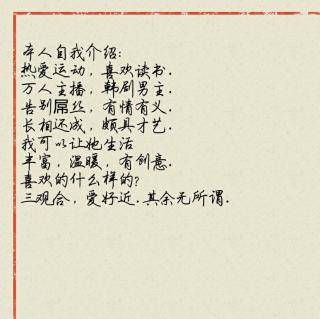 本人自我介绍:
热爱运动，喜欢读书.
万人主播，韩剧男主.
告别屌丝，有情有义.
长相还成，颇具才艺.
我可以让她生活
丰富，温暖，有创意.
喜欢的什么样的?
三观合，爱好近.其余无所谓.